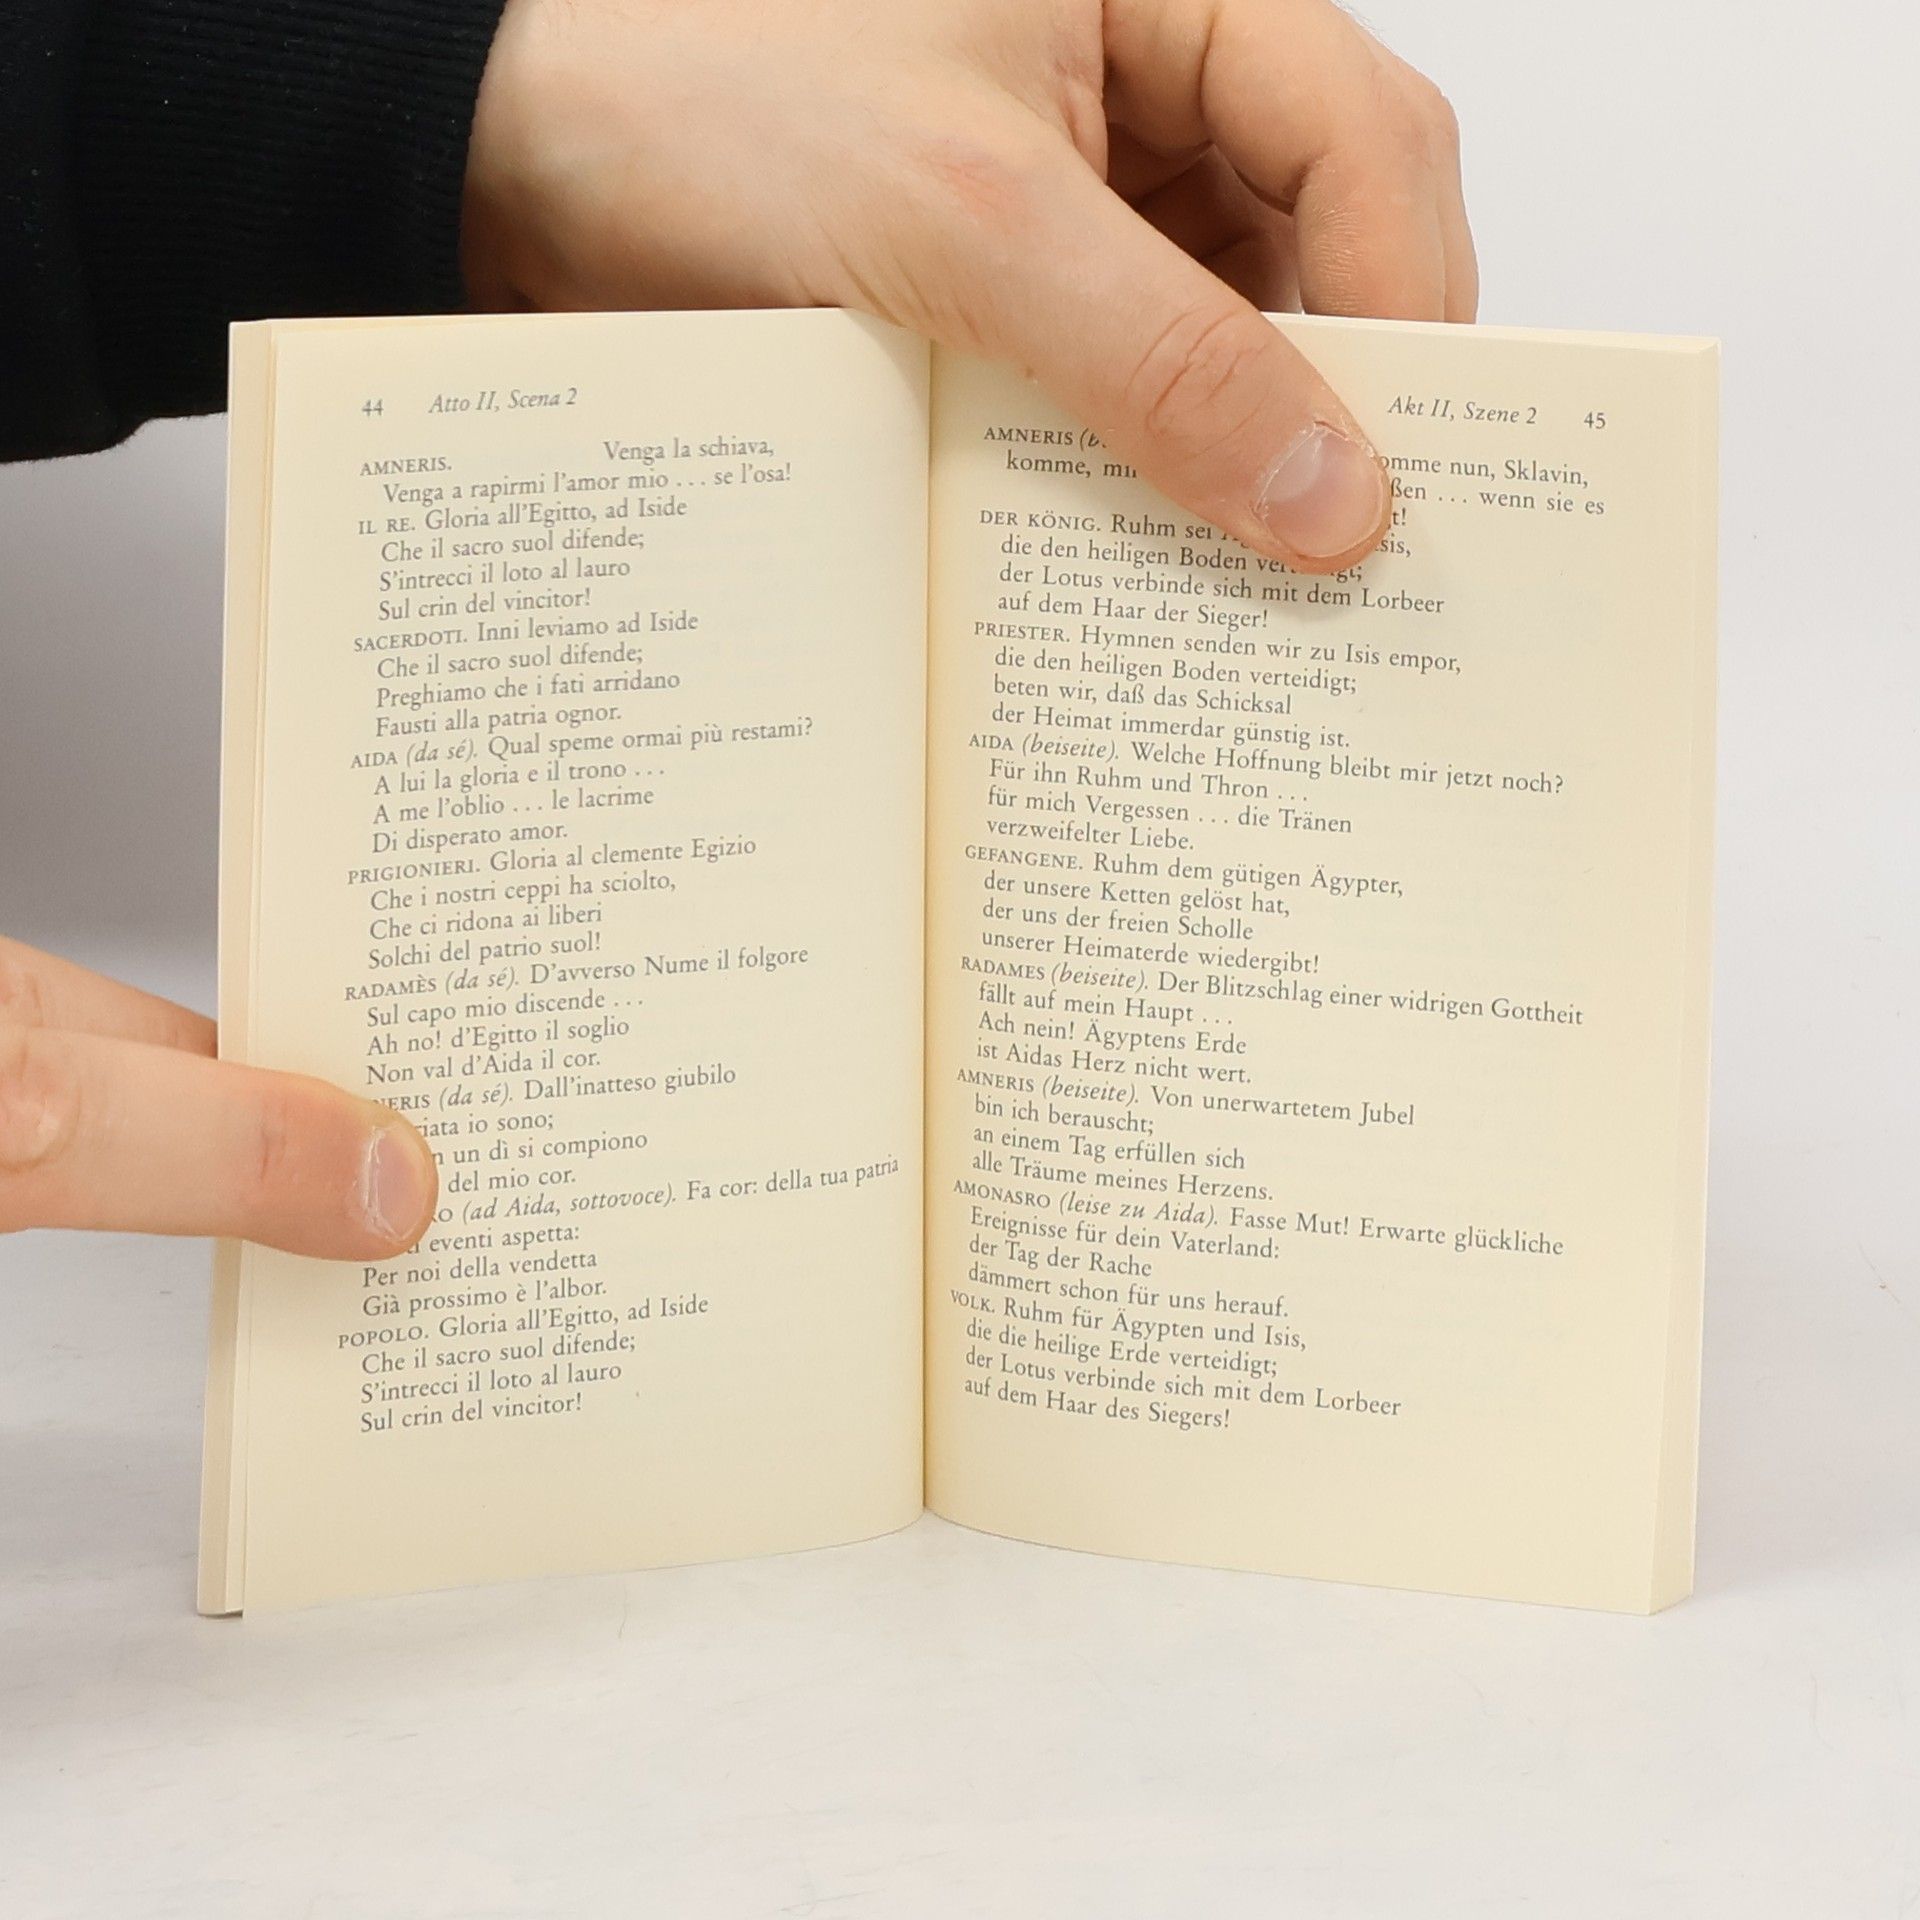 44 Atto II, Scena 2
AMNERIS. Venga la schiava,
Venga a rapirmi l'amor mio . . . se l'osa!
IL RE. Gloria all'Egitto, ad Iside
Che il sacro suol difende;
S'intrecci il loto al lauro
Sul crin del vincitor!
SACERDOTI. Inni leviamo ad Iside
Che il sacro suol difende;
Preghiamo che i fati arridano
Fausti alla patria ognor.
AIDA (da sé). Qual speme ormai più restami?
A lui la gloria e il trono . . .
A me l'oblio . . . le lacrime
Di disperato amor.
PRIGIONIERI. Gloria al clemente Egizio
Che i nostri ceppi ha sciolto,
Che ci ridona ai liberi
Solchi del patrio suol!
RADAMÈS (da sé). D'avverso Nume il folgore
Sul capo mio discende . . .
Ah no! d'Egitto il soglio
Non val d'Aida il cor.
(da sé). Dall'inatteso giubilo
io sono;
un dì si compiono
del mio cor.
(ad Aida, sottovoce). Fa cor: della tua patria
eventi aspetta:
Per noi della vendetta
Già prossimo è l'albor.
POPOLO. Gloria all'Egitto, ad Iside
Che il sacro suol difende;
S'intrecci il loto al lauro
Sul crin del vincitor!
Akt II, Szene 2 45
AMNERIS nun, Sklavin,
komme, . . . wenn sie es
DER KÖNIG. Ruhm sei
die den heiligen Boden
der Lotus verbinde sich mit dem Lorbeer
auf dem Haar der Sieger!
PRIESTER. Hymnen senden wir zu Isis empor,
die den heiligen Boden verteidigt;
beten wir, daß das Schicksal
der Heimat immerdar günstig ist.
AIDA (beiseite). Welche Hoffnung bleibt mir jetzt noch?
Für ihn Ruhm und Thron . . .
für mich Vergessen . . . die Tränen
verzweifelter Liebe.
GEFANGENE. Ruhm dem gütigen Ägypter,
der unsere Ketten gelöst hat,
der uns der freien Scholle
unserer Heimaterde wiedergibt!
RADAMES (beiseite). Der Blitzschlag einer widrigen Gottheit
fällt auf mein Haupt . . .
Ach nein! Ägyptens Erde
ist Aidas Herz nicht wert.
AMNERIS (beiseite). Von unerwartetem Jubel
bin ich berauscht;
an einem Tag erfüllen sich
alle Träume meines Herzens.
AMONASRO (leise zu Aida). Fasse Mut! Erwarte glückliche
Ereignisse für dein Vaterland:
der Tag der Rache
dämmert schon für uns herauf.
VOLK. Ruhm für Ägypten und Isis,
die die heilige Erde verteidigt;
der Lotus verbinde sich mit dem Lorbeer
auf dem Haar des Siegers!